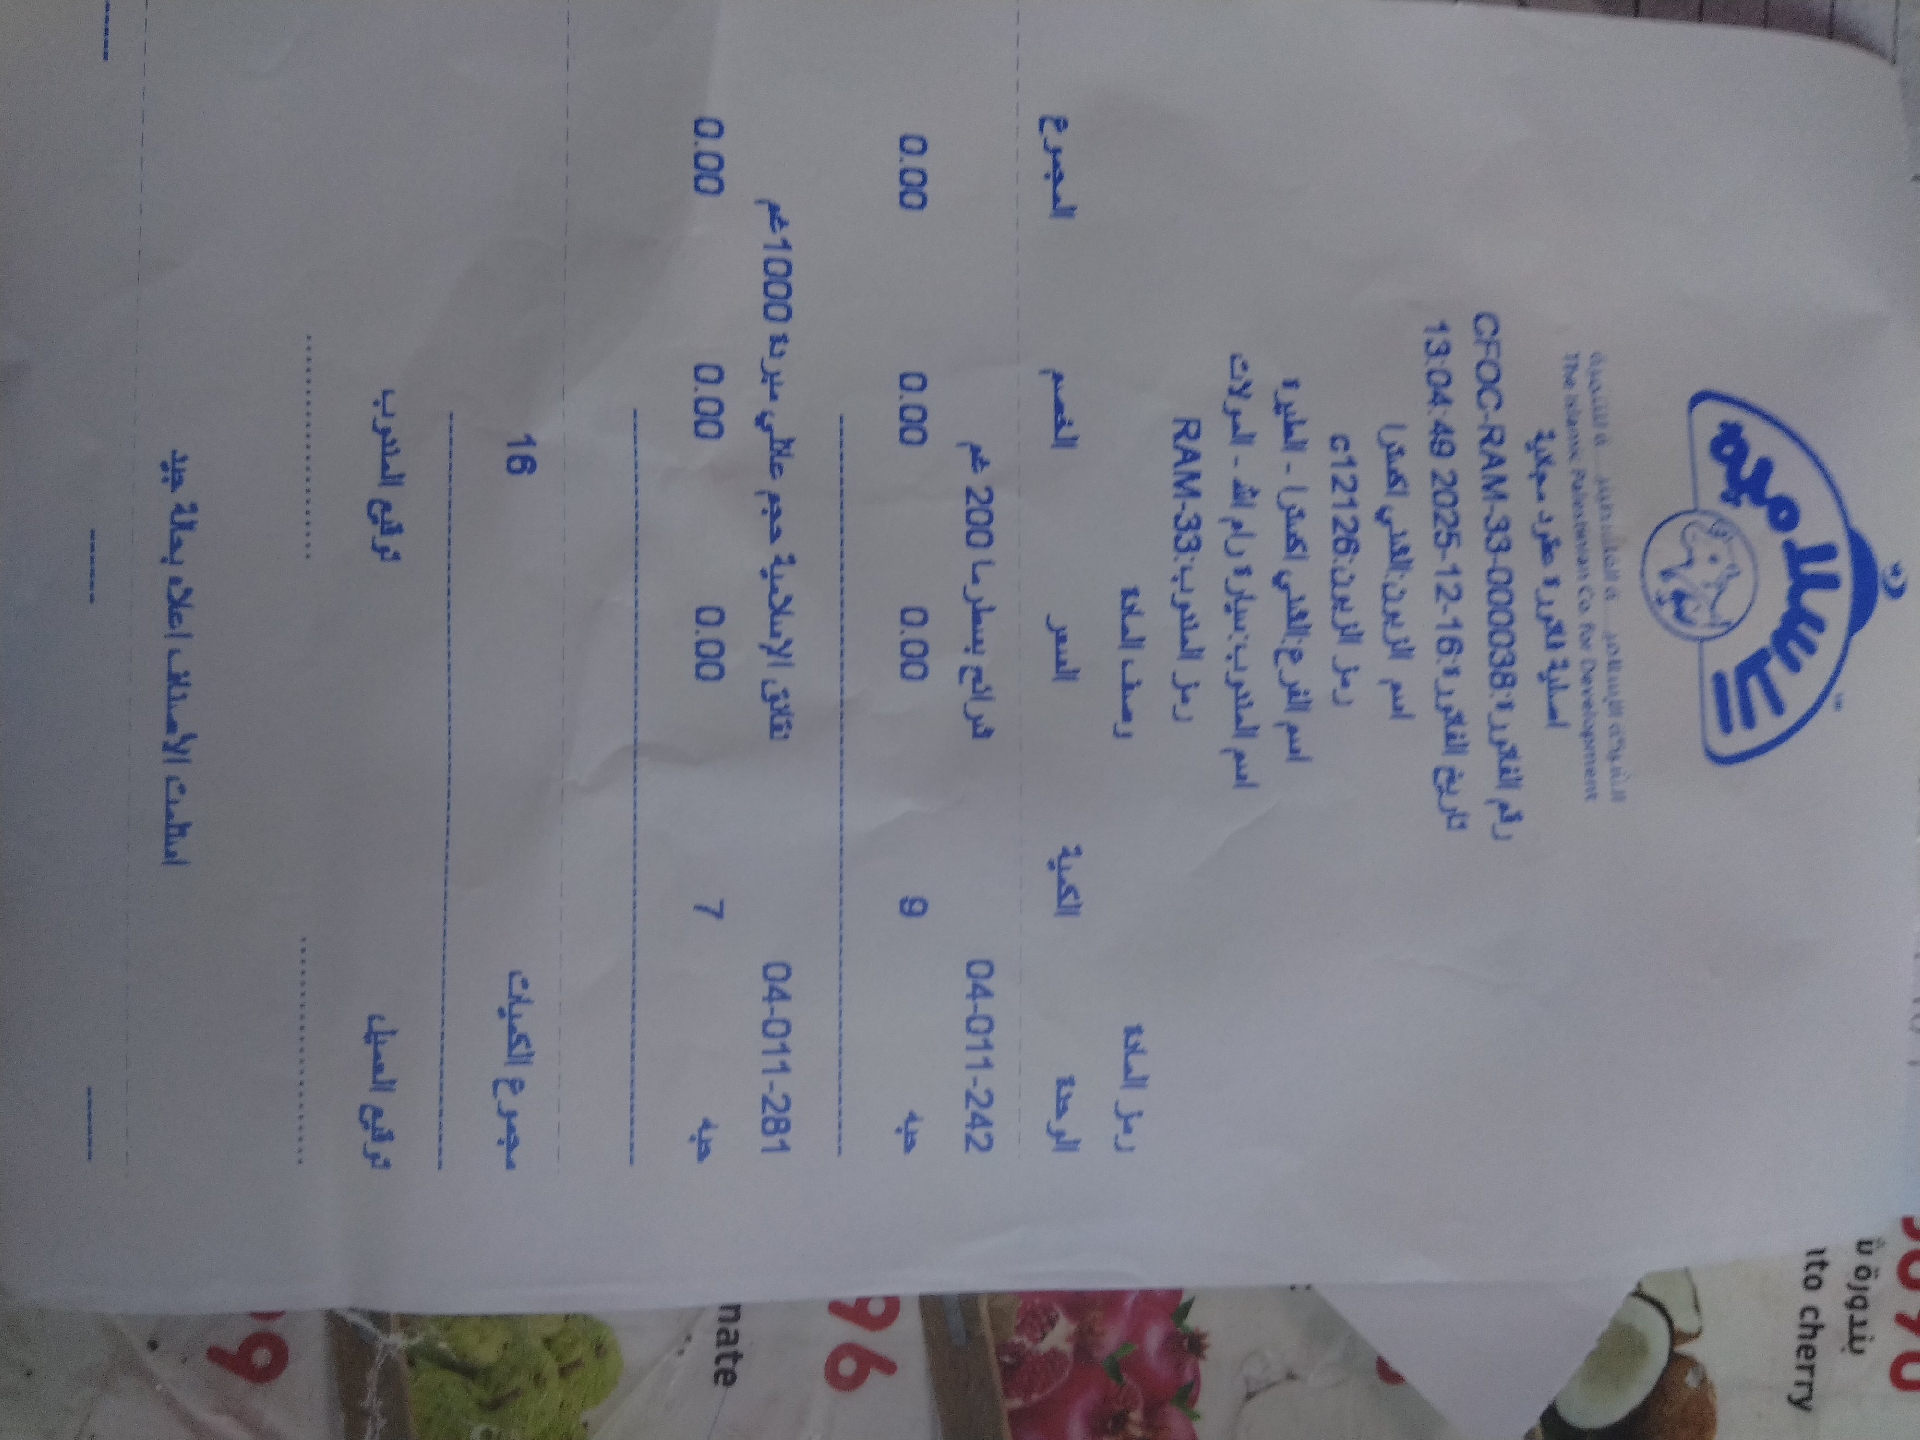 الإسلامية
الشركة الإسلامية الفلسطينية للتنمية
The Islamic Palestinian Co. for Development
اصلية فاتورة طرد مجانية
رقم الفاتورة:CFOC-RAM-33-000038
تاريخ الفاتورة:16-12-2025 13:04:49
اسم الزبون:الغني اكسترا
رمز الزبون:c12126
اسم الفرع:الغني اكسترا - الطيرة
اسم المندوب:سيارة رام الله - المولات
رمز المندوب:RAM-33
رمز المادة وصف المادة
الوحدة الكمية السعر الخصم المجموع
04-011-242 شرائح بسطرما 200 غم
حبة 9 0.00 0.00 0.00
04-011-281 نقانق الإسلامية حجم عائلي مبردة 1000غم
حبة 7 0.00 0.00 0.00
مجموع الكميات 16
توقيع العميل توقيع المندوب
استلمت الأصناف اعلاه بحالة جيد
بندورة
ato cherry
96
nate